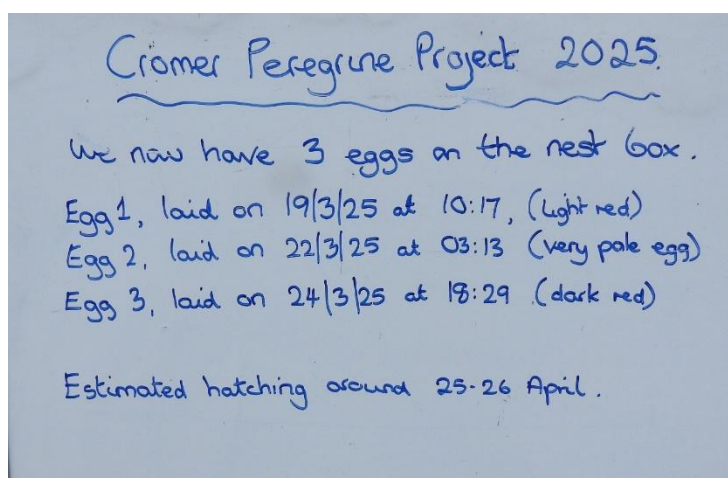 Cromer Peregrine Project 2025.
We now have 3 eggs on the nest box.
Egg 1, laid on 19/3/25 at 10:17, (light red)
Egg 2, laid on 22/3/25 at 03:13 (very pale egg)
Egg 3, laid on 24/3/25 at 18:29 (dark red)
Estimated hatching around 25-26 April.